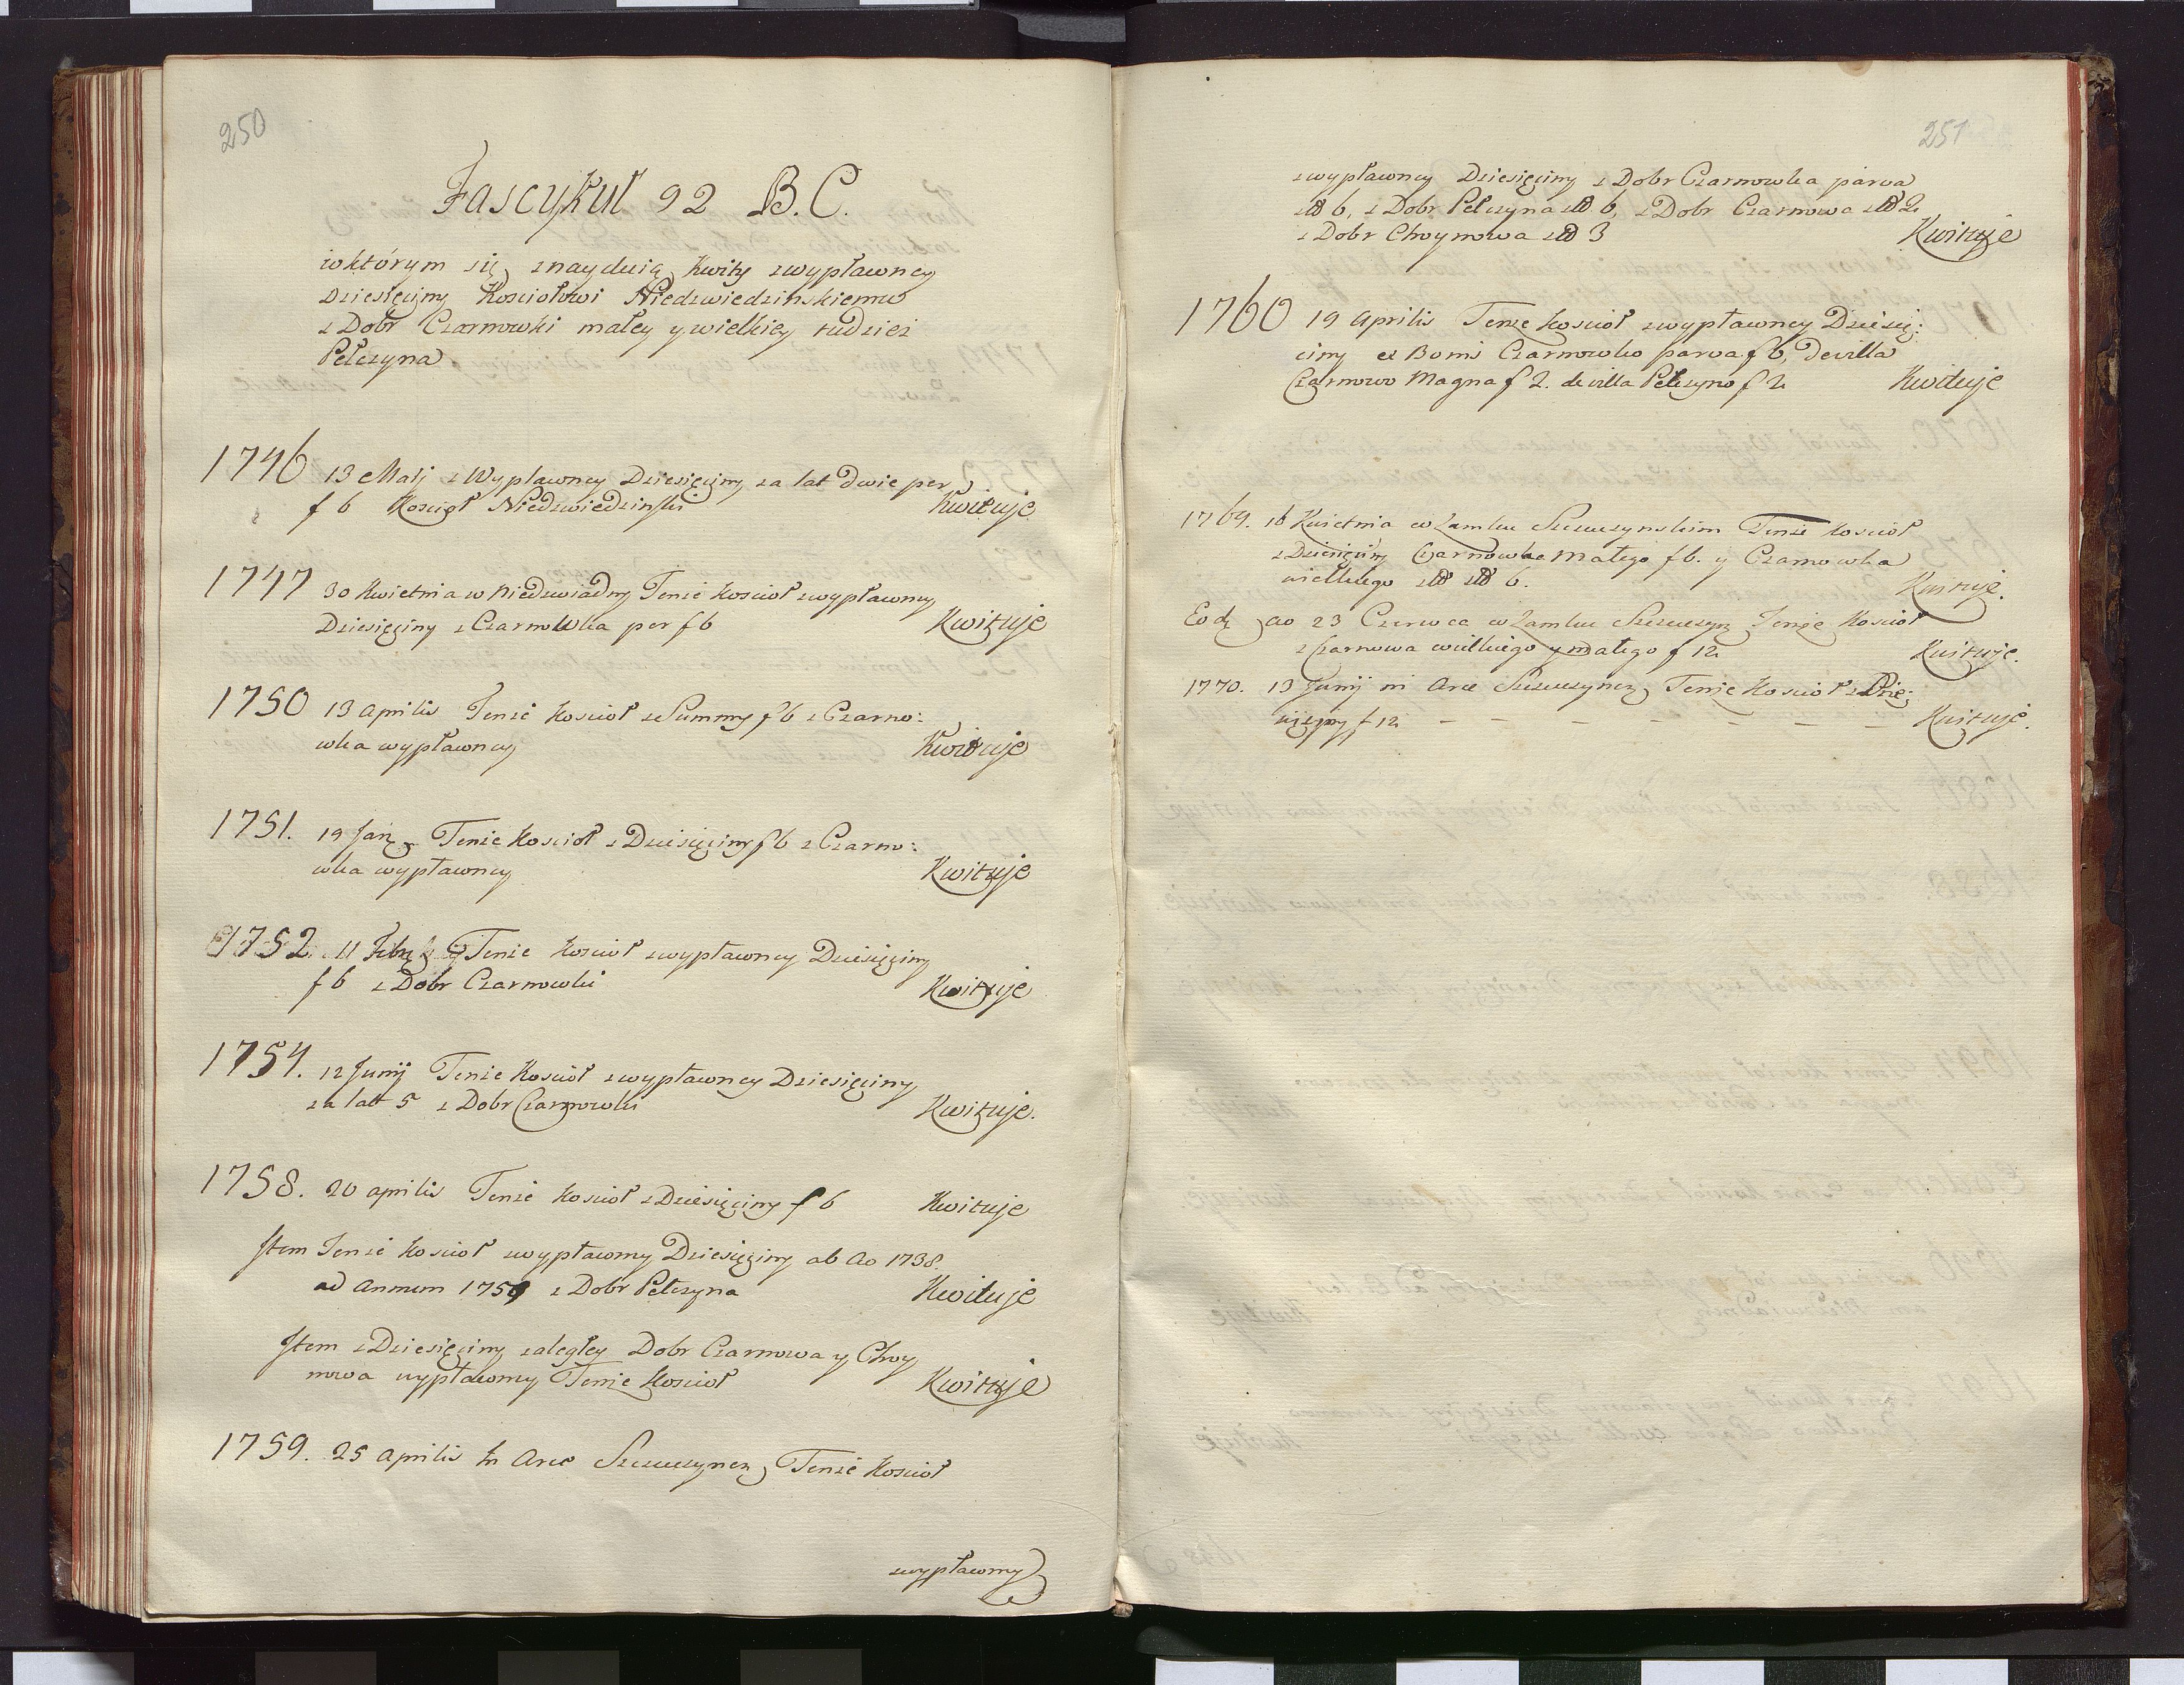 250
Fascykuł 92 B.C.
w którym się znayduią Kwity z wypławney
Dziesięciny Kosciołowi Niedzwiedzinskiemu
z Dobr Czarnowki małey y wielkiey tudziesz
Pełczyna
1746 13 Maij z Wypławney Dziesięciny za lat dwie per
f 6 Koscioł Niedzwiedzinski Kwituje
1747 30 Kwietnia w Niedzwiadny Tenże Koscioł z wypławney
Dziesięciny z Czarnowka per f 6 Kwituje
1750 13 Aprilis Tenże Koscioł ze Summy f 6 z Czarno:
wka wypławney Kwituje
1751. 19 Jan Tenże Koscioł z Dziesięciny f 6 z Czarno:
wka wypławney Kwituje
1752. 11 Febr Tenże Koscioł z wypławney Dziesięciny
f 6 z Dobr Czarnowki Kwituje
1754. 12 Junij Tenże Koscioł z wypławney Dziesięciny
za lat 5 z Dobr Czarnowki Kwituje.
1758. 20 Aprilis Tenże Koscioł z Dziesięciny f 6 Kwituje
Item Tenże Koscioł z wypławney Dziesięciny ab Ao 1738.
ad Annum 1759 z Dobr Pełczyna Kwituje
Item z Dziesięciny zaległey Dobr Czarnowa y Choy
nowa wypławney Tenże Koscioł Kwituje
1759. 25 Aprilis in Arce Szczuczynen Tenże Koscioł
z wypławney
251
z wypławney Dziesięciny z Dobr Czarnowka parva
zł 6, z Dobr Pełczyna zł 6, z Dobr Czarnowa zł 2
z Dobr Choynowa zł 3 Kwituje
1760 19 Aprilis Tenże Koscioł z wypławney Dziesię:
ciny ex Bonis Czarnowko parva f 6, de villa
Czarnowo Magna f 2. de villa Pełczyno f 2 Kwituje
1769. 16 Kwietnia w Zamku Szczuczynskim Tenże Koscioł
z Dziesięciny Czarnowka Małego f 6. y Czarnowka
wielkiego zł 6. Kwituje.
Eod Ao 23 Czerwca w Zamku Szczuczyn Tenże Koscioł
z Czarnowa wielkiego y małego f 12 Kwituje.
1770. 13 Junij in Arce Szczuczynen Tenże Koscioł z Dzie:
sięciny f 12 – – – – – – – Kwituje.